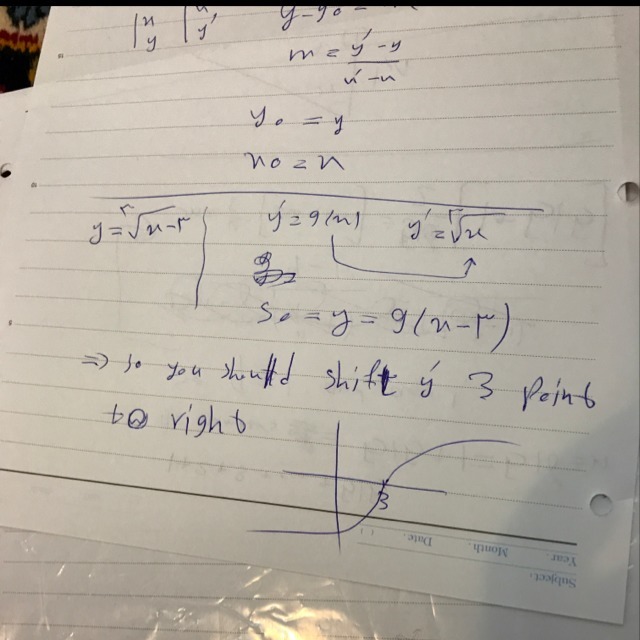 |x y |x' y' y - y₀ = m
m = y' - y / x' - x
y₀ = y
x₀ = x
y = ∛x-۳ y' = g(x) y' = ∛x
So = y = g(x-۳)
⇒ so you should shift y' 3 point
to right
3
Subject.
Year. Month. Date. ( )